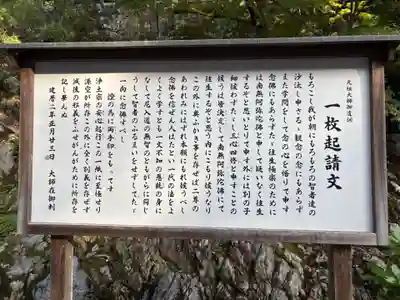 元祖大師御遺訓
一枚起請文
もろこし我が朝にもろもろの智者達の
沙汰し申さるゝ観念の念にもあらず
また学問をして念の心を悟りて申す
念佛にもあらずたゞ往生極楽のために
は南無阿弥陀佛と申して疑いなく往生
するぞと思いとりて申す外には別の子
細候わずたゞし三心四修と申すことの
候うは皆決定して南無阿弥陀佛にて
往生するぞと思う内にこもり候うなり
この外に奥ふかき事を存ぜば二尊の
あわれみにはずれ本願にもれ候うべし
念佛を信ぜん人はたとい一代の法をよ
くよく学すとも一文不知の愚鈍の身に
なして尼入道の無智のともがらに同じ
うして智者のふるまいをせずしてたゞ
一向に念佛すべし
証の為に両手印をもってす
浄土宗の安心起行この一紙に至極せり
源空が所存この外に全く別義を存ぜず
滅後の邪義をふせがんがために所存を
記し畢んぬ
建暦二年正月廿三日　大師在御判